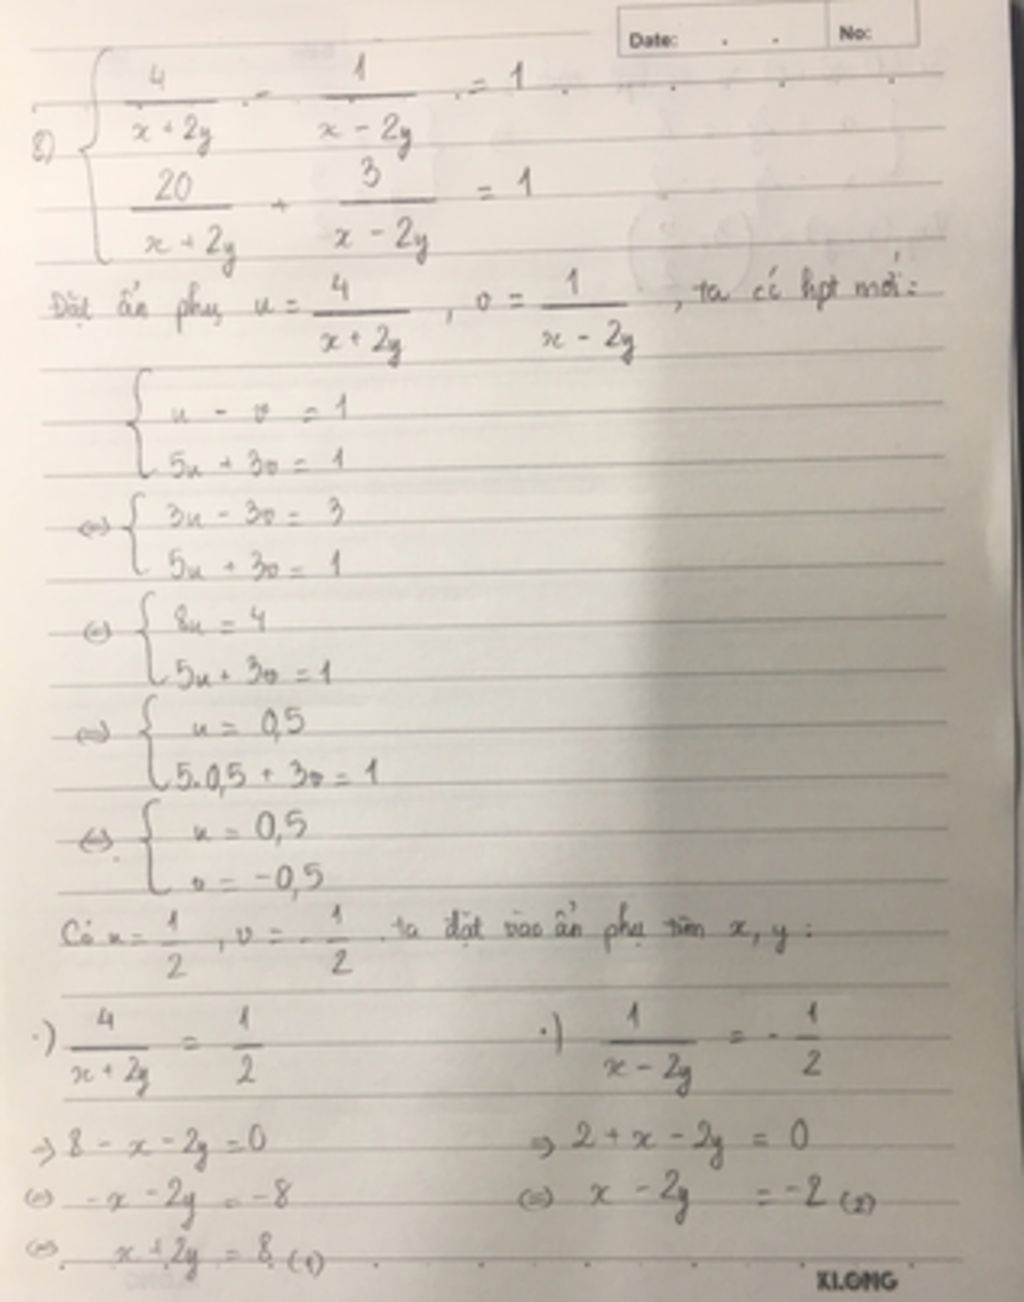 Date: . . No:
8) { 4/(x + 2y) - 1/(x - 2y) = 1
20/(x + 2y) + 3/(x - 2y) = 1
Đặt ẩn phụ u = 4/(x + 2y) , v = 1/(x - 2y) , ta có hpt mới:
{ u - v = 1
5u + 3v = 1
⇔ { 3u - 3v = 3
5u + 3v = 1
⇔ { 8u = 4
5u + 3v = 1
⇔ { u = 0,5
5.0,5 + 3v = 1
⇔ { u = 0,5
v = -0,5
Có u = 1/2 , v = -1/2 ta đặt vào ẩn phụ tìm x, y :
·) 4/(x + 2y) = 1/2 ·) 1/(x - 2y) = - 1/2
⇒ 8 - x - 2y = 0 ⇒ 2 + x - 2y = 0
⇔ -x - 2y = -8 ⇔ x - 2y = -2 (2)
⇔ x + 2y = 8 (1)
KLONG